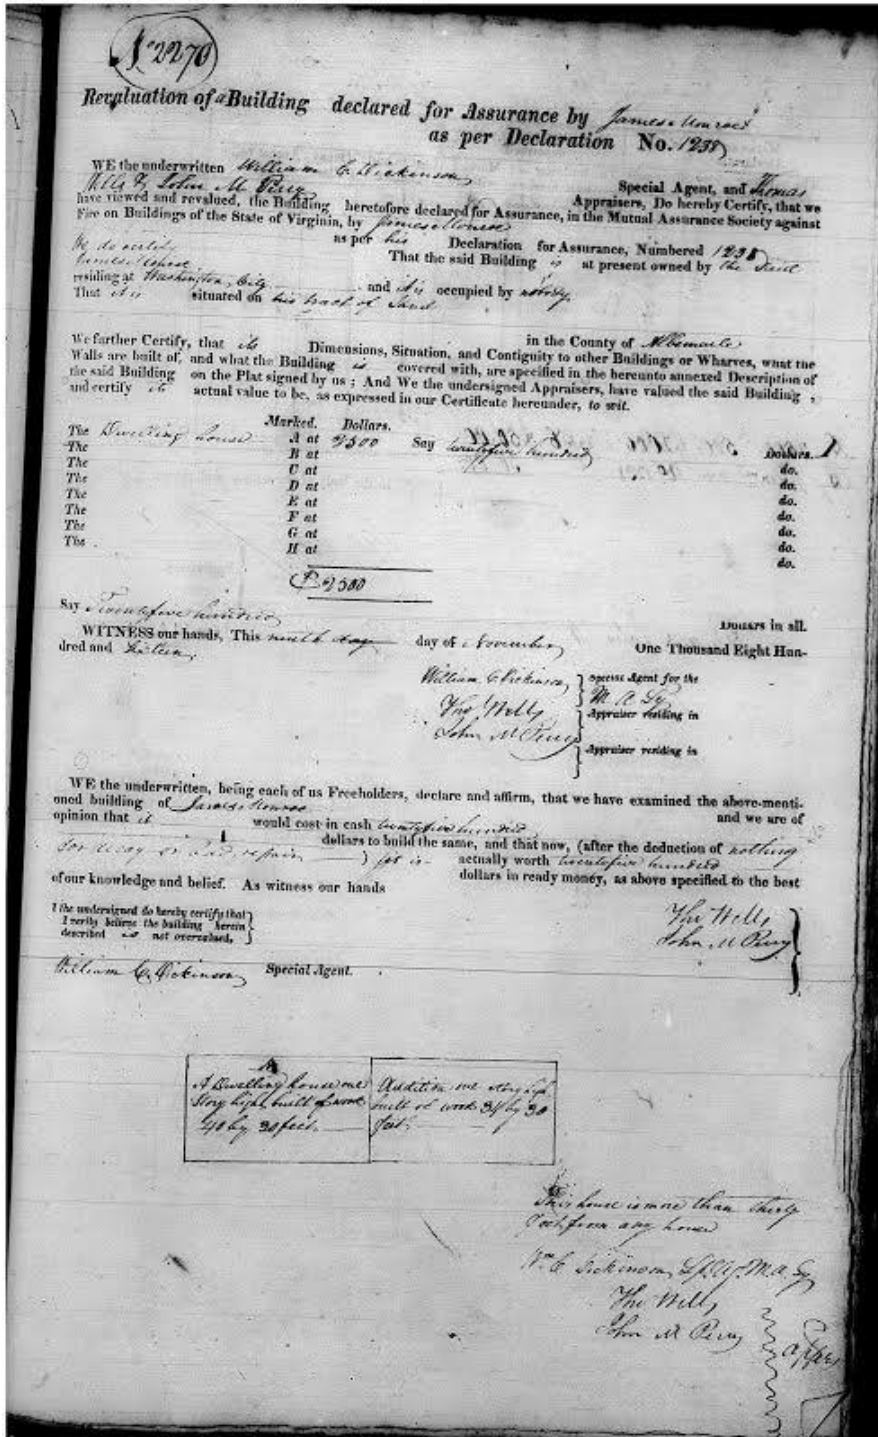 No 2270
Revaluation of a Building declared for Assurance by James Monroe
as per Declaration No. 1238
WE the underwritten William C. Dickinson
Special Agent, and Thomas
Wells & John M Perry Appraisers, Do hereby Certify, that we
have viewed and revalued, the Building heretofore declared for Assurance, in the Mutual Assurance Society against
Fire on Buildings of the State of Virginia, by James Monroe
as per his Declaration for Assurance, Numbered 1238
We do certify That the said Building is at present owned by the said
James Monroe
residing at Washington City and it is occupied by nobody
That it is situated on his tract of Land
in the County of Albemarle
We further Certify, that its Dimensions, Situation, and Contiguity to other Buildings or Wharves, what the
Walls are built of, and what the Building is covered with, are specified in the hereunto annexed Description of
the said Building on the Plat signed by us ; And We the undersigned Appraisers, have valued the said Building ,
and certify its actual value to be, as expressed in our Certificate hereunder, to wit.
Marked. Dollars.
The Dwelling house A at 2500 Say twentyfive hundred Dollars.
The B at do.
The C at do.
The D at do.
The E at do.
The F at do.
The G at do.
The H at do.
$2500
Say Twentyfive hundred Dollars in all.
WITNESS our hands, This ninth day day of November One Thousand Eight Hun-
dred and Sixteen.
William C Dickinson, Special Agent for the
M A Sy
Tho Wells Appraiser residing in
John M Perry
Appraiser residing in
WE the underwritten, being each of us Freeholders, declare and affirm, that we have examined the above-menti-
oned building of James Monroe and we are of
opinion that it would cost in cash twentyfive hundred
dollars to build the same, and that now, (after the deduction of nothing
for decay or bad repair ) is actually worth twentyfive hundred
dollars in ready money, as above specified to the best
of our knowledge and belief. As witness our hands
Tho Wells
John M Perry
I the undersigned do hereby certify that
I verily believe the building herein
described is not overvalued,
William C. Dickinson Special Agent.
A
A Dwelling house one
Story high built of wood
40 by 30 feet.
Addition one story high
built of wood 34 by 30
feet.
This house is more than thirty
feet from any house
Wm C Dickinson, Sp. Ag. M. A. Sy
Tho Wells
John M Perry